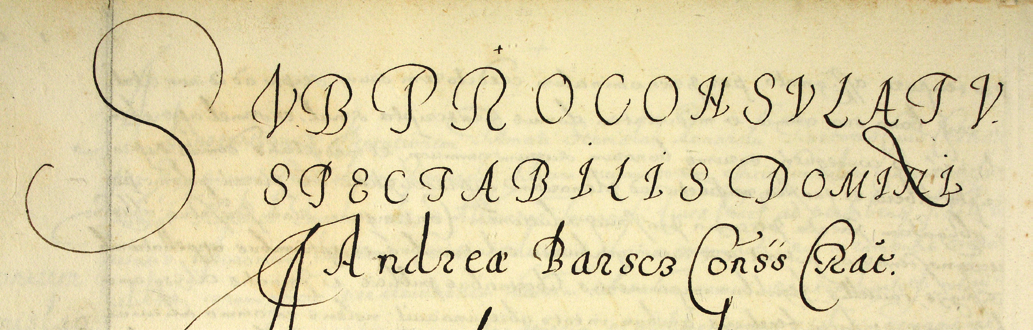 SVB PROCONSVLATV.
SPECTABILIS DOMINI
Andreæ Barscz Conss Crac.